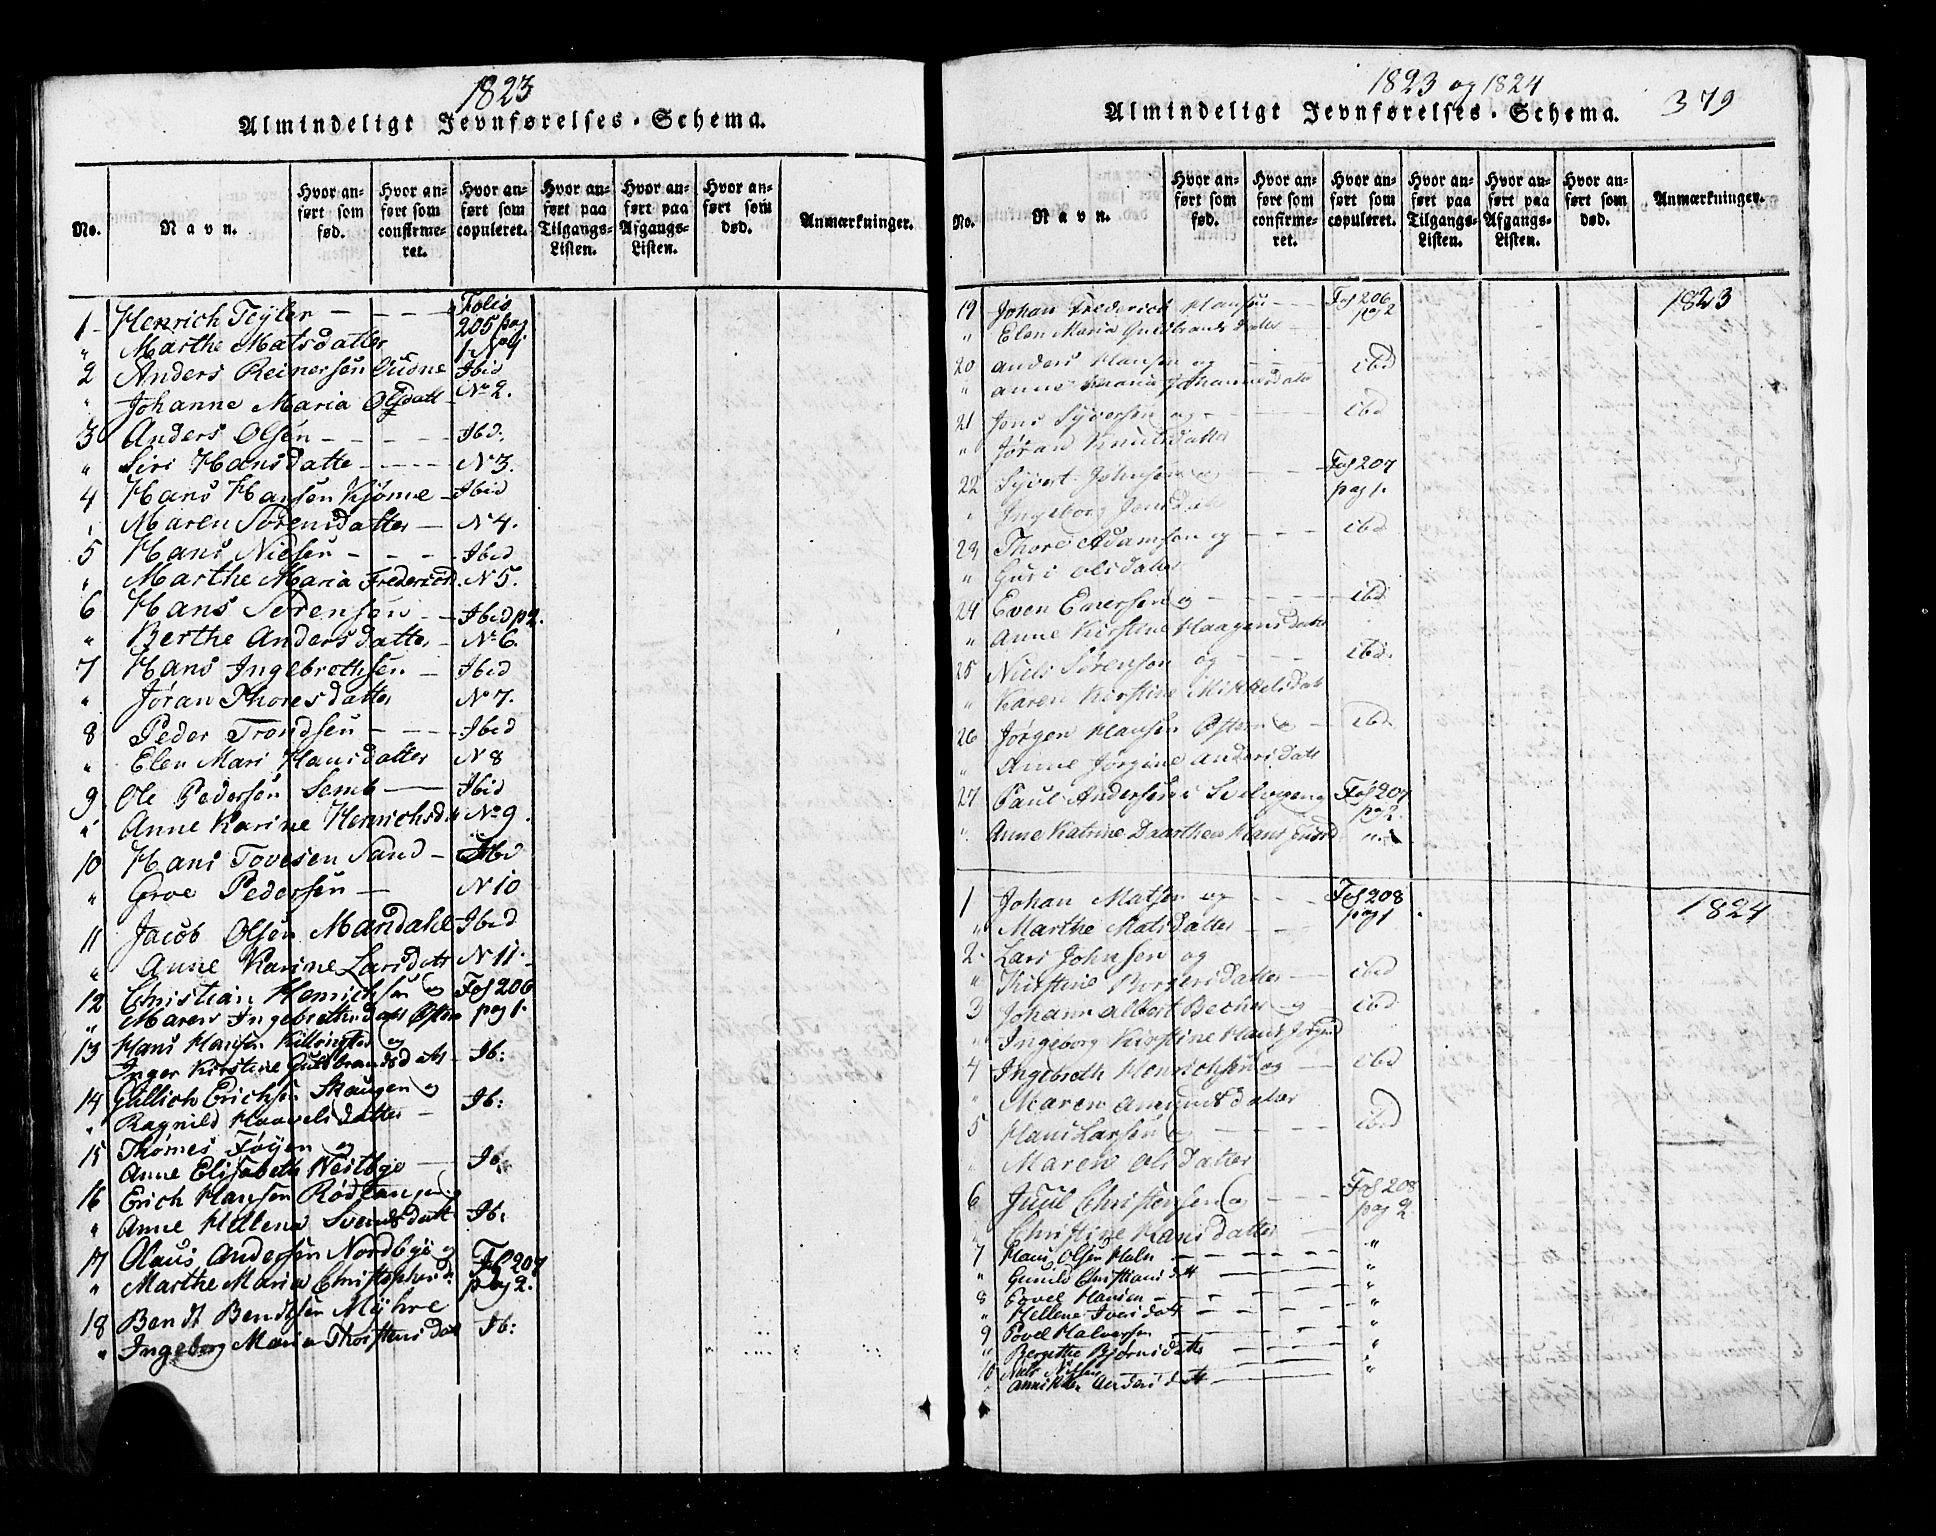 1823
Almindeligt Jevnførelses-Schema.
No. Navn. Hvor anført som fød. Hvor anført som confirmeret. Hvor anført som copuleret. Hvor anført paa Tilgangs-Listen. Hvor anført paa Afgangs-Listen. Hvor anført som død. Anmærkninger.
1 Henrich Tejler — Folio 205 pag
" Marthe Matsdatter 1 No 1
2 Anders Reinersen Gudne Ibid
" Johanne Maria Olsdatt No 2.
3 Anders Olsen Ibid:
" Siri Hansdatter N 3.
4 Hans Hansen Kjønne Ibid
" Maren Sørensdatter N 4.
5 Hans Nielsen Ibid
" Marthe Maria Fredericsd. N 5.
6 Hans Sørensen Ibid p 2.
" Berthe Andersdatter No 6.
7 Hans Ingebrethsen Ibid
" Jøran Thoresdatter N 7.
8 Peder Trondsen Ibid
" Elen Mari Hansdatter N 8
9 Ole Pedersen Semb Ibid
" Anne Karine Henrichsd No 9
10 Hans Tovesen Sand Ibid
" Groe Pedersen N 10
11 Jacob Olsen Mandahl Ibid
" Anne Karine Larsdatt N 11.
12 Christian Henrichsen og Fol 206
" Maren Ingebrethsdatt Østen pag 1.
13 Hans Hansen Killingstad og
Inger Kirstine Guldbrandsdatt Ib:
14 Gullich Erichsen Skaugen og
" Ragnild Haavelsdatter Ib:
15 Thomes Føyen og
Anne Elisabeth Nestbye Ib:
16 Erich Hansen Rødtangen og
" Anne Hellene Svendsdatt Ib:
17 Olaus Andersen Nordbye og Fol 207
" Marthe Maria Christophersd. pag 2.
18 Bendt Bendtsen Myhre
" Ingeborg Maria Thorstensdat Ib:
1823 og 1824
379
Almindeligt Jevnførelses-Schema.
No. Navn. Hvor anført som fød. Hvor anført som confirmeret. Hvor anført som copuleret. Hvor anført paa Tilgangs-Listen. Hvor anført paa Afgangs-Listen. Hvor anført som død. Anmærkninger.
19 Johan Frederich Hansen Fol 206 1823
" Elen Maria Guldbrandsdatter pag 2
20 Anders Hansen og ibd
" Anne Maria Johannesdatter
21 Jens Syversen og ibd
" Jøran Knudsdatter
22 Syvert Johnsen og Fol 207
" Ingeborg Jensdatter pag 1.
23 Thore Adamsen og ibd
" Guri Olsdatter
24 Even Enersen og ibd
" Anne Kirstine Haagensdatter
25 Niels Sørensen og ibd.
" Karen Kirstine Mikkelsdatt
26 Jørgen Hansen Østen og ibd.
" Anne Jørgine Andersdatt
27 Paul Andersen i Selvigen og Fol 207
" Anne Katrine Dorthea Hans pag 2.
1 Johan Matsen og Fol 208 1824
" Marthe Matsdatter pag 1
2. Lars Johnsen og
" Kirstine Borgersdatter ibid
3 Johann Albert Becher og ibd
" Ingeborg Kirstine Hans
4 Ingebreth Henrichsen og ibd
" Maren Amundsdatter
5 Hans Larsen og ibid
" Maren Olsdatter
6 Juul Christensen og Fol 208
" Christine Hansdatter pag 2.
7 Hans Olsen Holm "
" Gunild Christiansdatt "
8 Povel Hansen "
" Hellene Iversdatt "
9 Povel Halversen "
" Bergithe Bjørnsdatter "
10 Nils Nilsen "
" Andersdatt